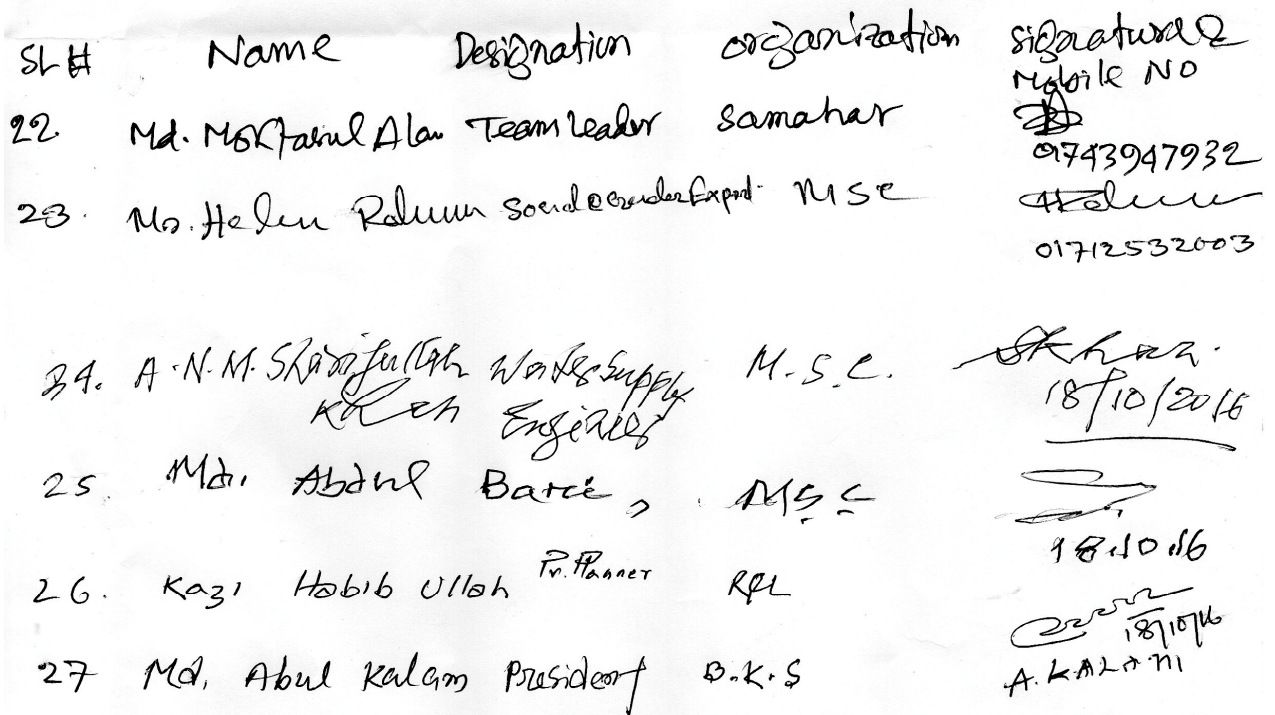 SL # Name Designation Organization Signature &
Mobile NO
22. Md. Moktarul Alam Team Leader Samahar
01743947932
23. Ms. Helen Rahman Social & Gender Expert M S C
01712532003
24. A.N.M. Sharifullah Water Supply M.S.C. Skhan.
Khan Engineer 18/10/2016
25. Md. Abdul Barie, MSC
18.10.16
26. Kazi Habib Ullah Pr. Planner
18/10/16
27 Md. Abul Kalam President B.K.S A. KALAM